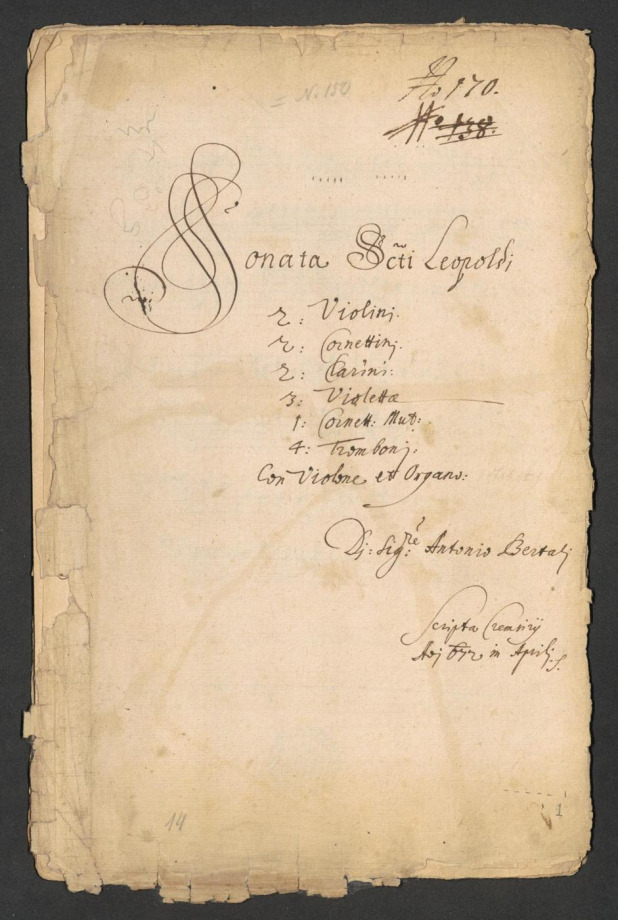 N. 150
No 170.
No 138.
Sonata Scti Leopoldi
2: Violinj.
2: Cornettinj.
2: Clarini:
3: Violettæ
1: Cornett: Mut:
4: Trombonj.
Con Violone et Organo:
Dj: Sigre: Antonio Bertalj
Scripta Cremsirij
in Aprilj
14
1